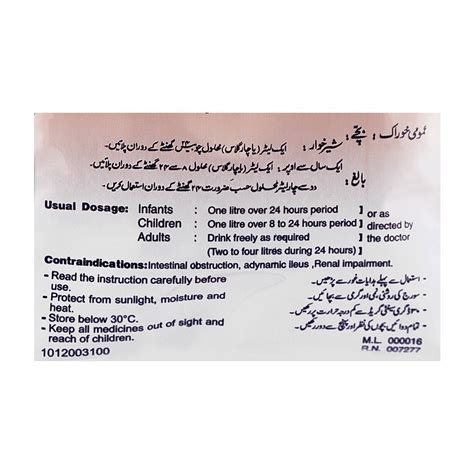 عمومی خوراک: بچّے: شیرخوار: ایک لیٹر (یا چار گلاس) محلول چوبیس گھنٹے کے دوران پلائیں۔
ایک سال سے اوپر: ایک لیٹر (یا چار گلاس) محلول ۸ سے ۲۴ گھنٹے کے دوران پلائیں۔
بالغ: دو سے چار لیٹر محلول حسبِ ضرورت ۲۴ گھنٹے کے دوران استعمال کریں۔
Usual Dosage: Infants : One litre over 24 hours period ] or as
Children : One litre over 8 to 24 hours period ] directed by
Adults : Drink freely as required ] the doctor
(Two to four litres during 24 hours) ]
Contraindications: Intestinal obstruction, adynamic ileus, Renal impairment.
- Read the instruction carefully before
use.
- Protect from sunlight, moisture and
heat.
- Store below 30°C.
- Keep all medicines out of sight and
reach of children.
1012003100
- استعمال سے پہلے ہدایات غور سے پڑھیں۔
- سورج کی روشنی، نمی اور گرمی سے بچائیں۔
- ۳۰ ڈگری سینٹی گریڈ سے کم درجہ حرارت پر رکھیں۔
- تمام دوائیں بچوں کی نظر اور پہنچ سے دور رکھیں۔
M.L. 000016
R.N. 007277